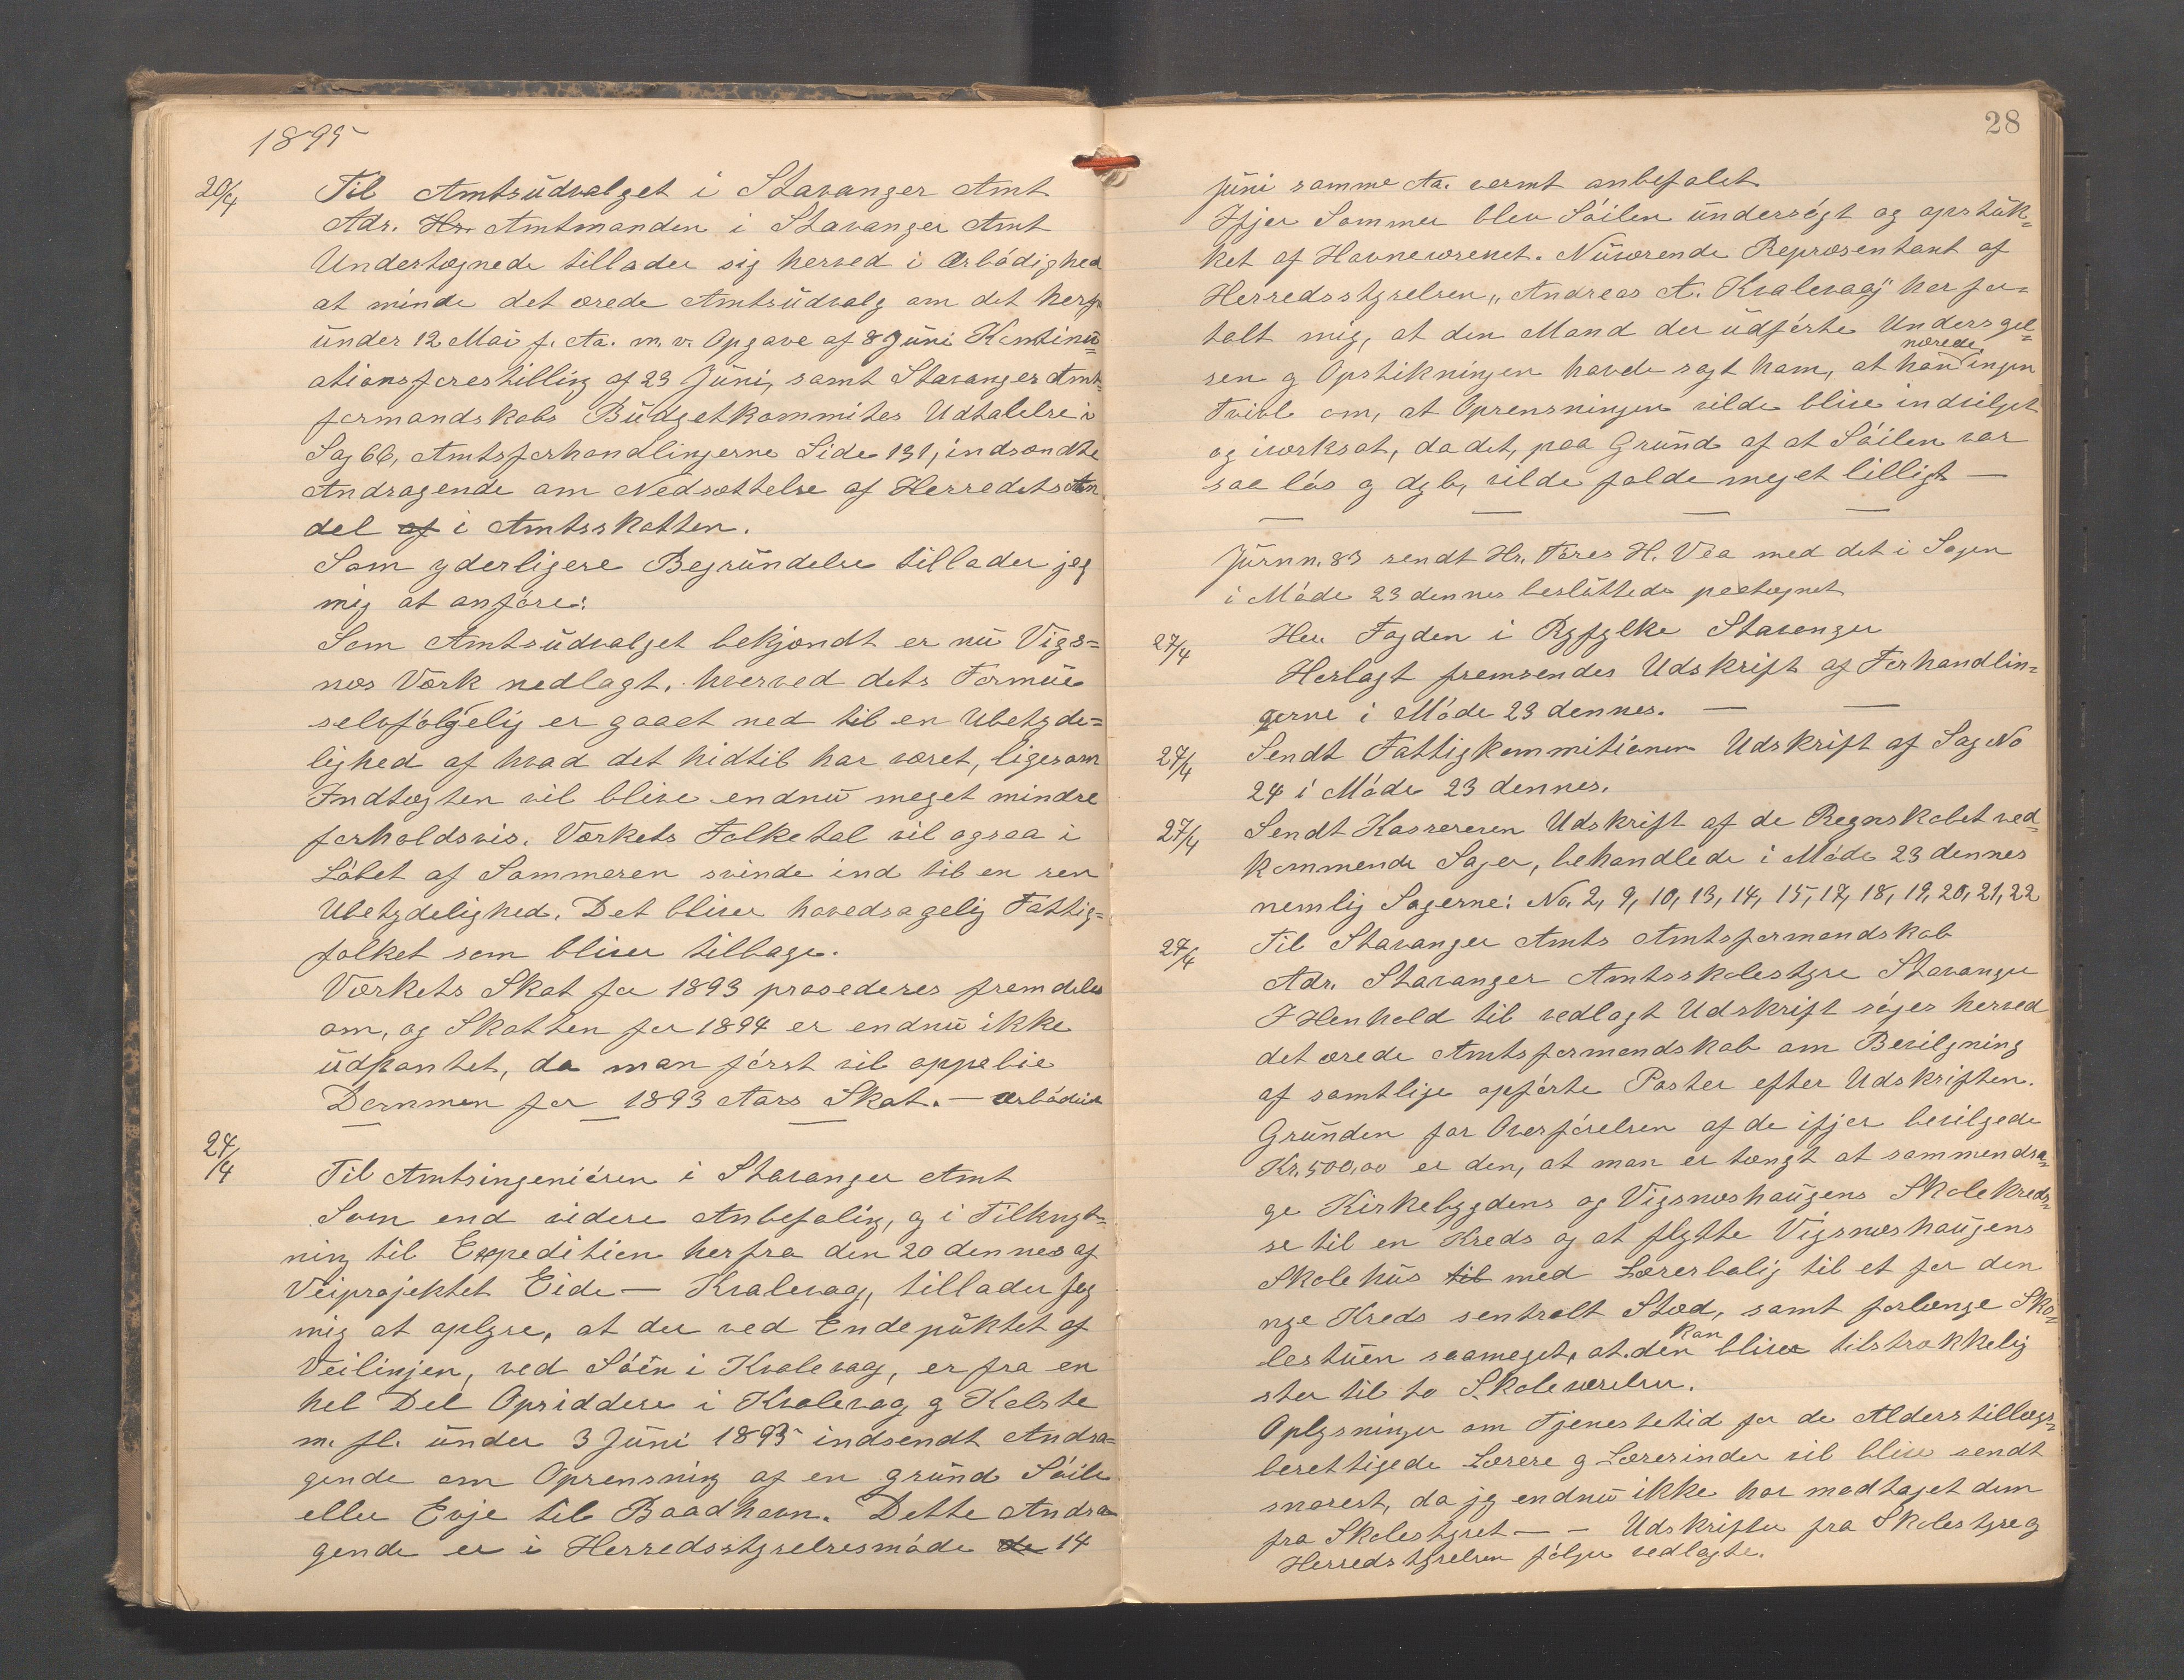 1895
20/4 Til Amtsudvalget i Stavanger Amt
Adr. Hr. Amtmanden i Stavanger Amt
Undertegnede tillader sig herved i Ærbödighed
at minde det ærede Amtsudvalg om det herfra
under 12 Mai f. Aa. m. v. Opgave af 8 Juni Kontinu=
ationsforestilling af 23 Juni, samt Stavanger Amt=
formandskabs Budgetkommites Udtalelse i
Sag 66, Amtsforhandlingerne Side 131, indsendte
Andragende om Nedsættelse af Herredets An
del af i Amtsskatten.
Som yderligere Begrundelse tillader jeg
mig at anföre:
Som Amtsudvalget bekjendt er nu Vigs=
nes Værk nedlagt, hvorved dets Formue
selvfölgelig er gaaet ned til en Ubetyde=
lighed af hvad det hidtil har været, ligesom
Indtægten vil blive endnu meget mindre
forholdsvis. Værkets Folketal vil ogsaa i
Löbet af Sommeren svinde ind til en ren
Ubetydelighed. Det bliver hovedsagelig Fattig=
folket som bliver tilbage.
Værkets Skat for 1893 prosederes fremdeles
om, og Skatten for 1894 er endnu ikke
udpantet, da man först vil oppebie
Dommen for 1893 Aars Skat. — Ærbödigst
24/4
Til Amtsingeniören i Stavanger Amt
Som end videre Anbefaling, og i Tilknyt=
ning til Expeditien herfra den 20 dennes af
Veiprojektet Eide — Kvalevag, tillader jeg
mig at oplyse, at der ved Endepunktet af
Veilinjen, ved Söen i Kvalevag, er fra en
hel Del Opsiddere i Kvalevag og Kolste
m. fl. under 3 Juni 1893 indsendt Andra=
gende om Oprensning af en grund Söile
eller Evje til Baadhavn. Dette Andra
gende er i Herredsstyrelsesmöde de 14
28
Juni samme Aa. varmt anbefalet.
Ifjor Sommer blev Söilen undersögt og opstuk=
ket af Havnevæsenet. Nuværende Repræsentant af
Herredsstyrelsen „Andreas A. Kvalevaag" har for=
talt mig, at den Mand der udförte Undersgel=
sen og Opstikningen havde sagt ham, at han nærede ingen
Tvivl om, at Oprensningen vilde blive indvilget
og iværksat, da det, paa Grund af at Söilen var
saa lös og dyb, vilde falde meget billigt —
Journ. 83 sendt Hr. Tores H. Vea med det i Sagen
i Möde 23 dennes besluttede paategnet
27/4 Herr Fogden i Ryfylke Stavanger
Herlagt fremsendes Udskrift af Forhandlin=
gerne i Möde 23 dennes. —
27/4 Sendt Fattigkommitionen Udskrift af Sag No
24 i Möde 23 dennes.
27/4 Sendt Kassereren Udskrift af de Regnskabet ved=
kommende Sager, behandlede i Möde 23 dennes
nemlig Sagerne: No. 2, 9, 10, 13, 14, 15, 17, 18, 19, 20, 21, 22
27/4 Til Stavanger Amts Amtsformandskab
Adr. Stavanger Amtsskolestyre Stavanger
I Henhold til vedlagt Udskrift söges herved
det ærede Amtsformandskab om Bevilgning
af samtlige opförte Poster efter Udskriften.
Grunden for Overförelsen af de ifjor bevilgede
Kr. 500,00 er den, at man er tængt at sammendra=
ge Kirkebygdens og Vigsneshaugens Skolekred=
se til en Kreds og at flytte Vigsneshaugens
Skolehus til med Lærerbolig til et for den
nye Kreds sentralt Sted, samt forlænge Sko=
lestuen saameget, at den kan bliver tilstrækkelig
stor til to Skoleværelser.
Oplysninger om Tjenestetid for de Alderstillægs=
berettigede Lærere og Lærerinder vil blive sendt
snarest, da jeg endnu ikke har modtaget dem
fra Skolestyret — — Udskrifter fra Skolestyre og
Herredstyrelsen fölger vedlagte.